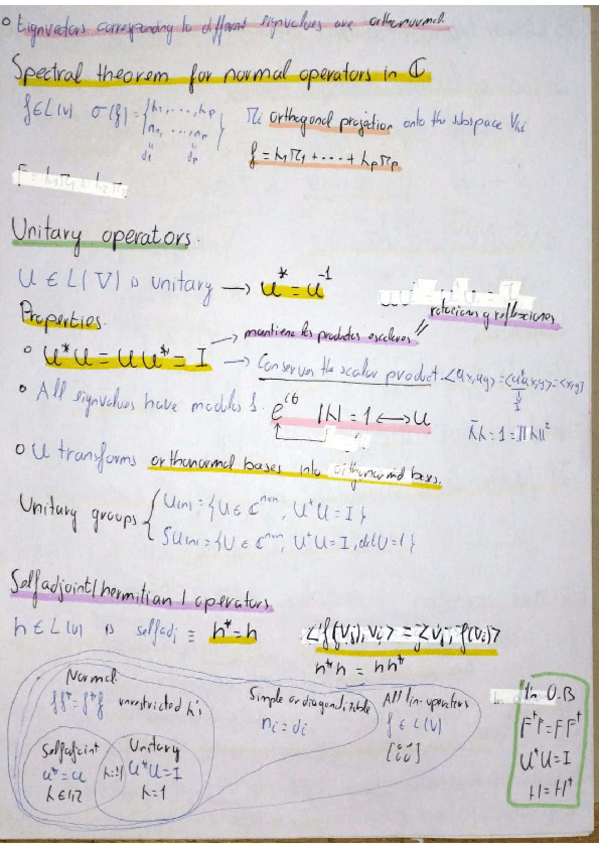 o Eignvectors corresponding to different eignvalues are orthonormal.
Spectral theorem for normal operators in ℂ
f∈L(V) σ(f) = {h1, ..., hp
n1, ..., np}
di dp
πi orthogonal projection onto the subspace Vhi
f = h1π1 + ... + hpπp
Unitary operators.
U ∈ L(V) is unitary → u* = u^-1
rotaciones y reflexiones
Properties.
→ mantiene los productos escalares //
o u*u = uu* = I → Conserves the scalar product. <ux,uy> = <u*ux,y> = <x,y>
I
o All eignvalues have modulus 1. e^iθ |h| = 1 ↔ u
h̄h = 1 = ||h||²
o U transforms orthonormal bases into orthonormal bases.
Unitary groups { U(n) = {U ∈ ℂ^nxn, U*U = I}
SU(n) = {U ∈ ℂ^nxn, U*U = I, det U = 1}
Selfadjoint/hermitian/operators
h ∈ L(V) is selfadj ≡ h* = h <f(vi), vi> = <vi, f(vi)>
h*h = hh*
Normal
ff* = f*f unrestricted h's
Simple or diagonalizable
ni = di
All lin. operators
f ∈ L(V)
Selfadjoint
u* = u
h ∈ ℝ
h=±1
Unitary
u*u = I
h=1
In O.B
F*F = FF*
U*U = I
H = H*